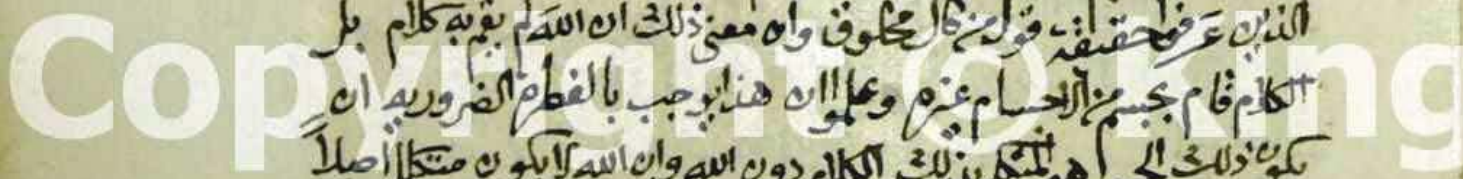 الذين عرفوا حقيقة قول من قال مخلوق وان معنى ذلك ان الله لم يقم به كلام بل
الكلام قام بجسم من الاجسام غيره وعلموا ان هذا يوجب بالفطرة الضروريه ان
يكون ذلك الجسم هو المتكلم بذلك الكلام دون الله وان الله لا يكون متكلما اصلاً
Copyright © King